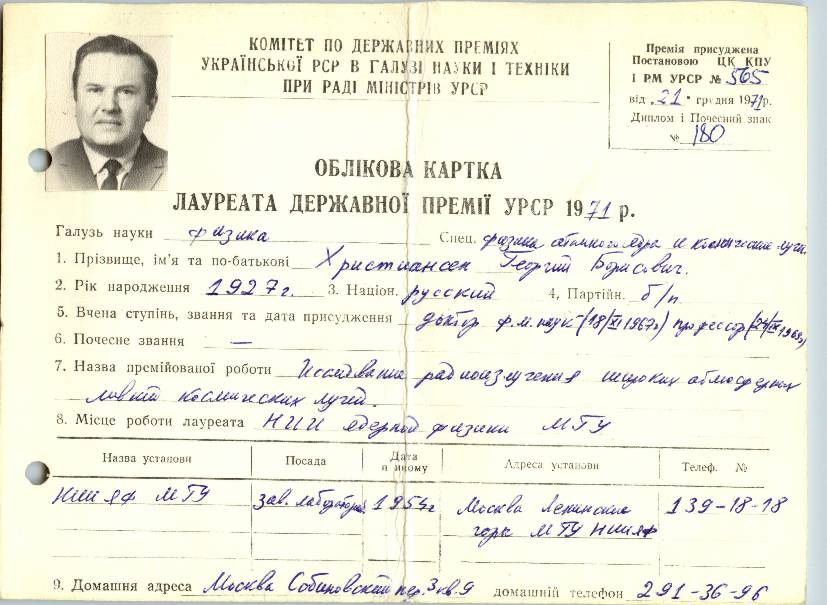 КОМІТЕТ ПО ДЕРЖАВНИХ ПРЕМІЯХ
УКРАЇНСЬКОЇ РСР В ГАЛУЗІ НАУКИ І ТЕХНІКИ
ПРИ РАДІ МІНІСТРІВ УРСР
Премія присуджена
Постановою ЦК КПУ
і РМ УРСР № 565
від „21" грудня 1971р.
Диплом і Почесний знак
№ 180
ОБЛІКОВА КАРТКА
ЛАУРЕАТА ДЕРЖАВНОЇ ПРЕМІЇ УРСР 1971 р.
Галузь науки физика Спец. физика атомного ядра и космические лучи.
1. Прізвище, ім'я та по-батькові Христиансен Георгий Борисович.
2. Рік народження 1927г. 3. Націон. русский 4. Партійн. б/п
5. Вчена ступінь, звання та дата присудження доктор ф.м. наук (18/XI 1967г) профессор
6. Почесне звання —
7. Назва премійованої роботи Исследование радиоизлучения широких атмосферных
ливней космических лучей.
8. Місце роботи лауреата НИИ ядерной физики МГУ
Назва установи Посада Дата прийому Адреса установи Телеф. №
НИИЯФ МГУ зав. лабораторией 1954г Москва Ленинские 139-18-18
горы МГУ НИИЯФ
9. Домашня адреса Москва Собиновский пер. 3 кв. 9 домашній телефон 291-36-96